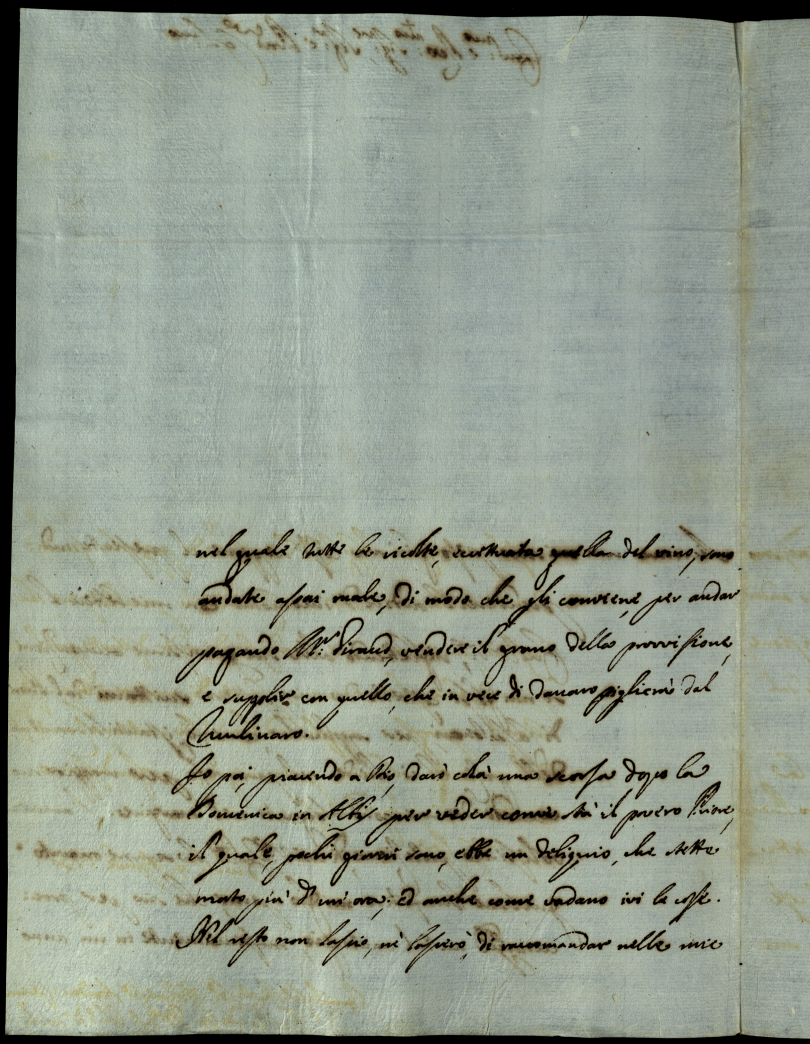 nel quale tutte le ricolte, eccettuata quella del vino, sono
andate assai male, di modo che gli conviene per andar
pagando Mr. Giraud, vendere il grano della provvisione,
e supplire con quello, che in vece di danaro piglierà dal
Mulinaro.
Io poi, piacendo a Dio, darò colà una scorsa dopo la
Domenica in Albis per veder come stà il povero Priore,
il quale, pochi giorni sono, ebbe un deliquio, che stette
morto più d'un'ora; ed anche come vadano ivi le cose.
Nel resto non lascio, nè lascierò, di raccomandar nelle mie